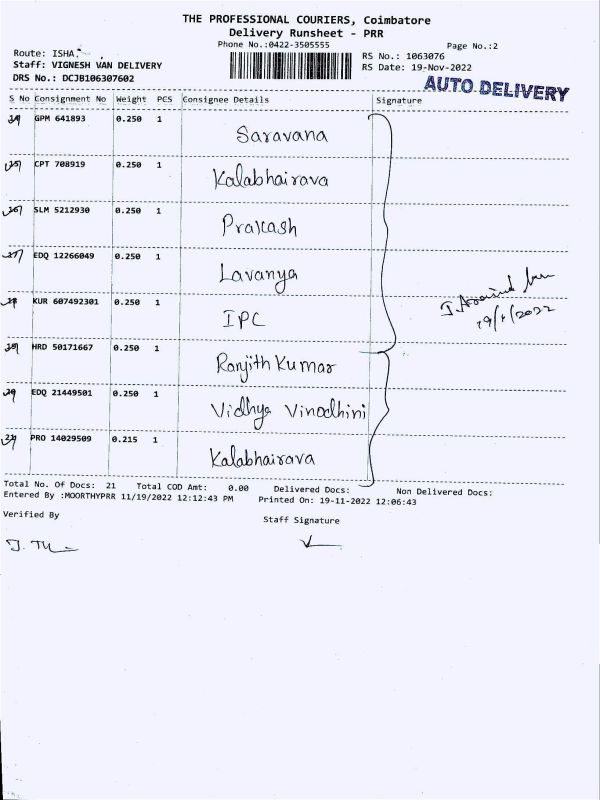 THE PROFESSIONAL COURIERS, Coimbatore
Delivery Runsheet - PRR
Phone No.:0422-3505555 Page No.:2
Route: ISHA, , RS No.: 1063076
Staff: VIGNESH VAN DELIVERY RS Date: 19-Nov-2022
DRS No.: DCJB106307602 AUTO DELIVERY
S No Consignment No Weight PCS Consignee Details Signature
14 GPM 641893 0.250 1 Saravana
15 CPT 708919 0.250 1 Kalabhairava
16 SLM 5212930 0.250 1 Prakash
17 EDQ 12266049 0.250 1 Lavanya
18 KUR 607492301 0.250 1 IPC
19/1/2022
19 HRD 50171667 0.250 1 Ranjith Kumar
20 EDQ 21449501 0.250 1 Vidhya Vinodhini
21 PRO 14029509 0.215 1 Kalabhairava
Total No. Of Docs: 21 Total COD Amt: 0.00 Delivered Docs: Non Delivered Docs:
Entered By :MOORTHYPRR 11/19/2022 12:12:43 PM Printed On: 19-11-2022 12:06:43
Verified By Staff Signature